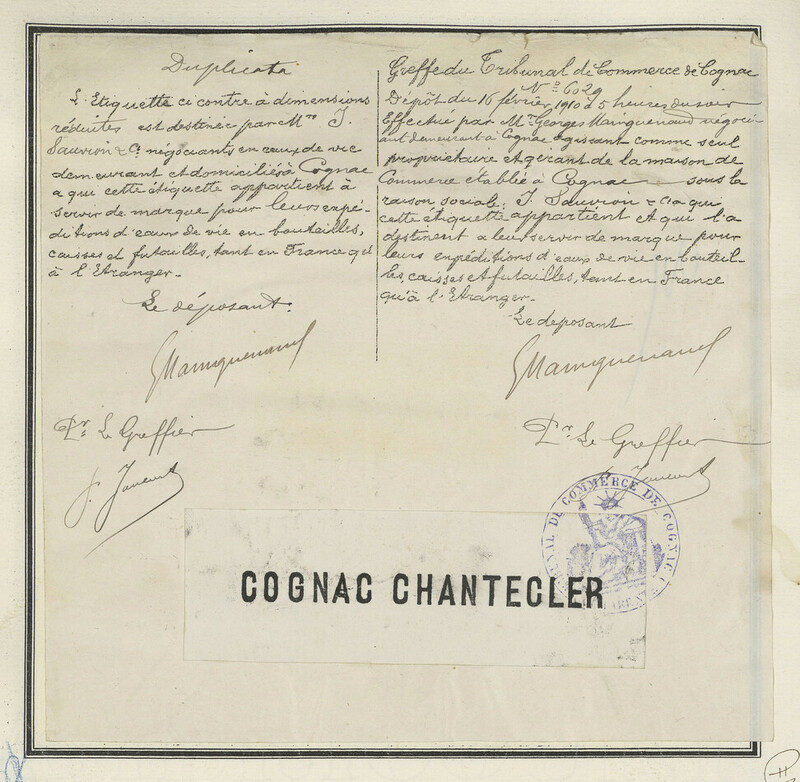 Duplicata
L'Etiquette ci contre à dimensions
réduites est destinée par Mrs J.
Sauvion & Cie négociants en eaux de vie
demeurant et domiciliés à Cognac
a qui cette étiquette appartient à
servir de marque pour leurs expé-
ditions d'eaux de vie en bouteilles,
caisses et futailles, tant en France qu'
à l'Etranger.
Le déposant:
GMainguenaud
Pr Le Greffier
Greffe du Tribunal de Commerce de Cognac
No 6029
Dépôt du 16 février, 1910 à 5 heures du soir
Effectué par Mr Georges Mainguenaud négoci-
ant demeurant à Cognac agissant comme seul
propriétaire et gérant de la maison de
Commerce établie à Cognac sous la
raison sociale: J. Sauvion & Cia qui
cette étiquette appartient et qui l'a
destinent a leur servir de marque pour
leurs expéditions d'eaux de vie en bouteil-
les, caisses et futailles, tant en France
qu'à l'Etranger.
Le deposant
GMainguenaud
Pr Le Greffier
TRIBUNAL DE COMMERCE DE COGNAC
COGNAC CHANTECLER